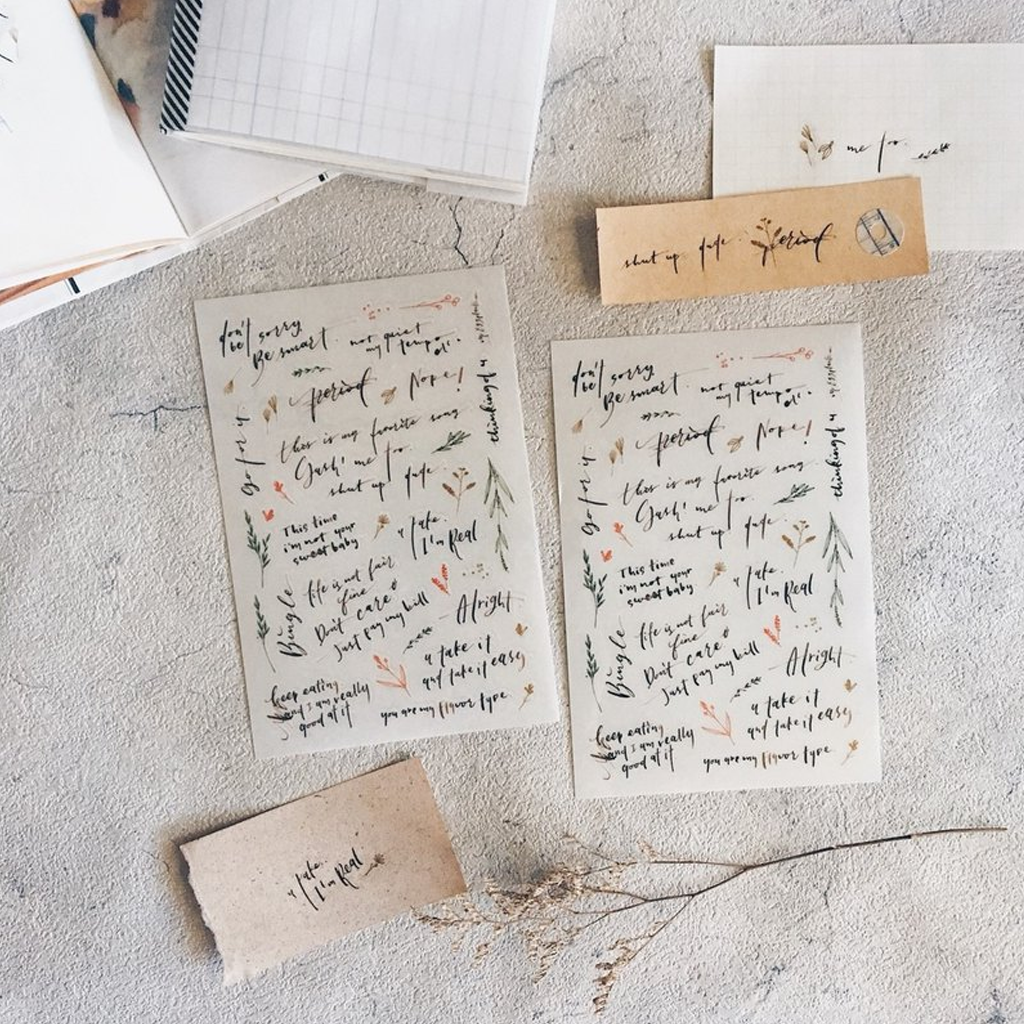 me too.
shut up dude. period
don't be sorry
Be smart.
not quiet
my tempo
period
Nope!
thinking of u
Go for u
this is my favorite song
Gush! me too.
shut up dude.
This time
i'm not your
sweet baby
u fake.
I'm Real
life is not fair
fine
Don't care
Just pay my bill
Bingle
Alright
u take it
and take it easy
keep eating
and I am really
good at it
you are my flavor type
don't be sorry
Be smart.
not quiet
my tempo
period
Nope!
thinking of u
Go for u
this is my favorite song
Gush! me too.
shut up dude.
This time
i'm not your
sweet baby
u fake.
I'm Real
life is not fair
fine
Don't care
Just pay my bill
Bingle
Alright
u take it
and take it easy
keep eating
and I am really
good at it
you are my flavor type
u fake.
I'm Real